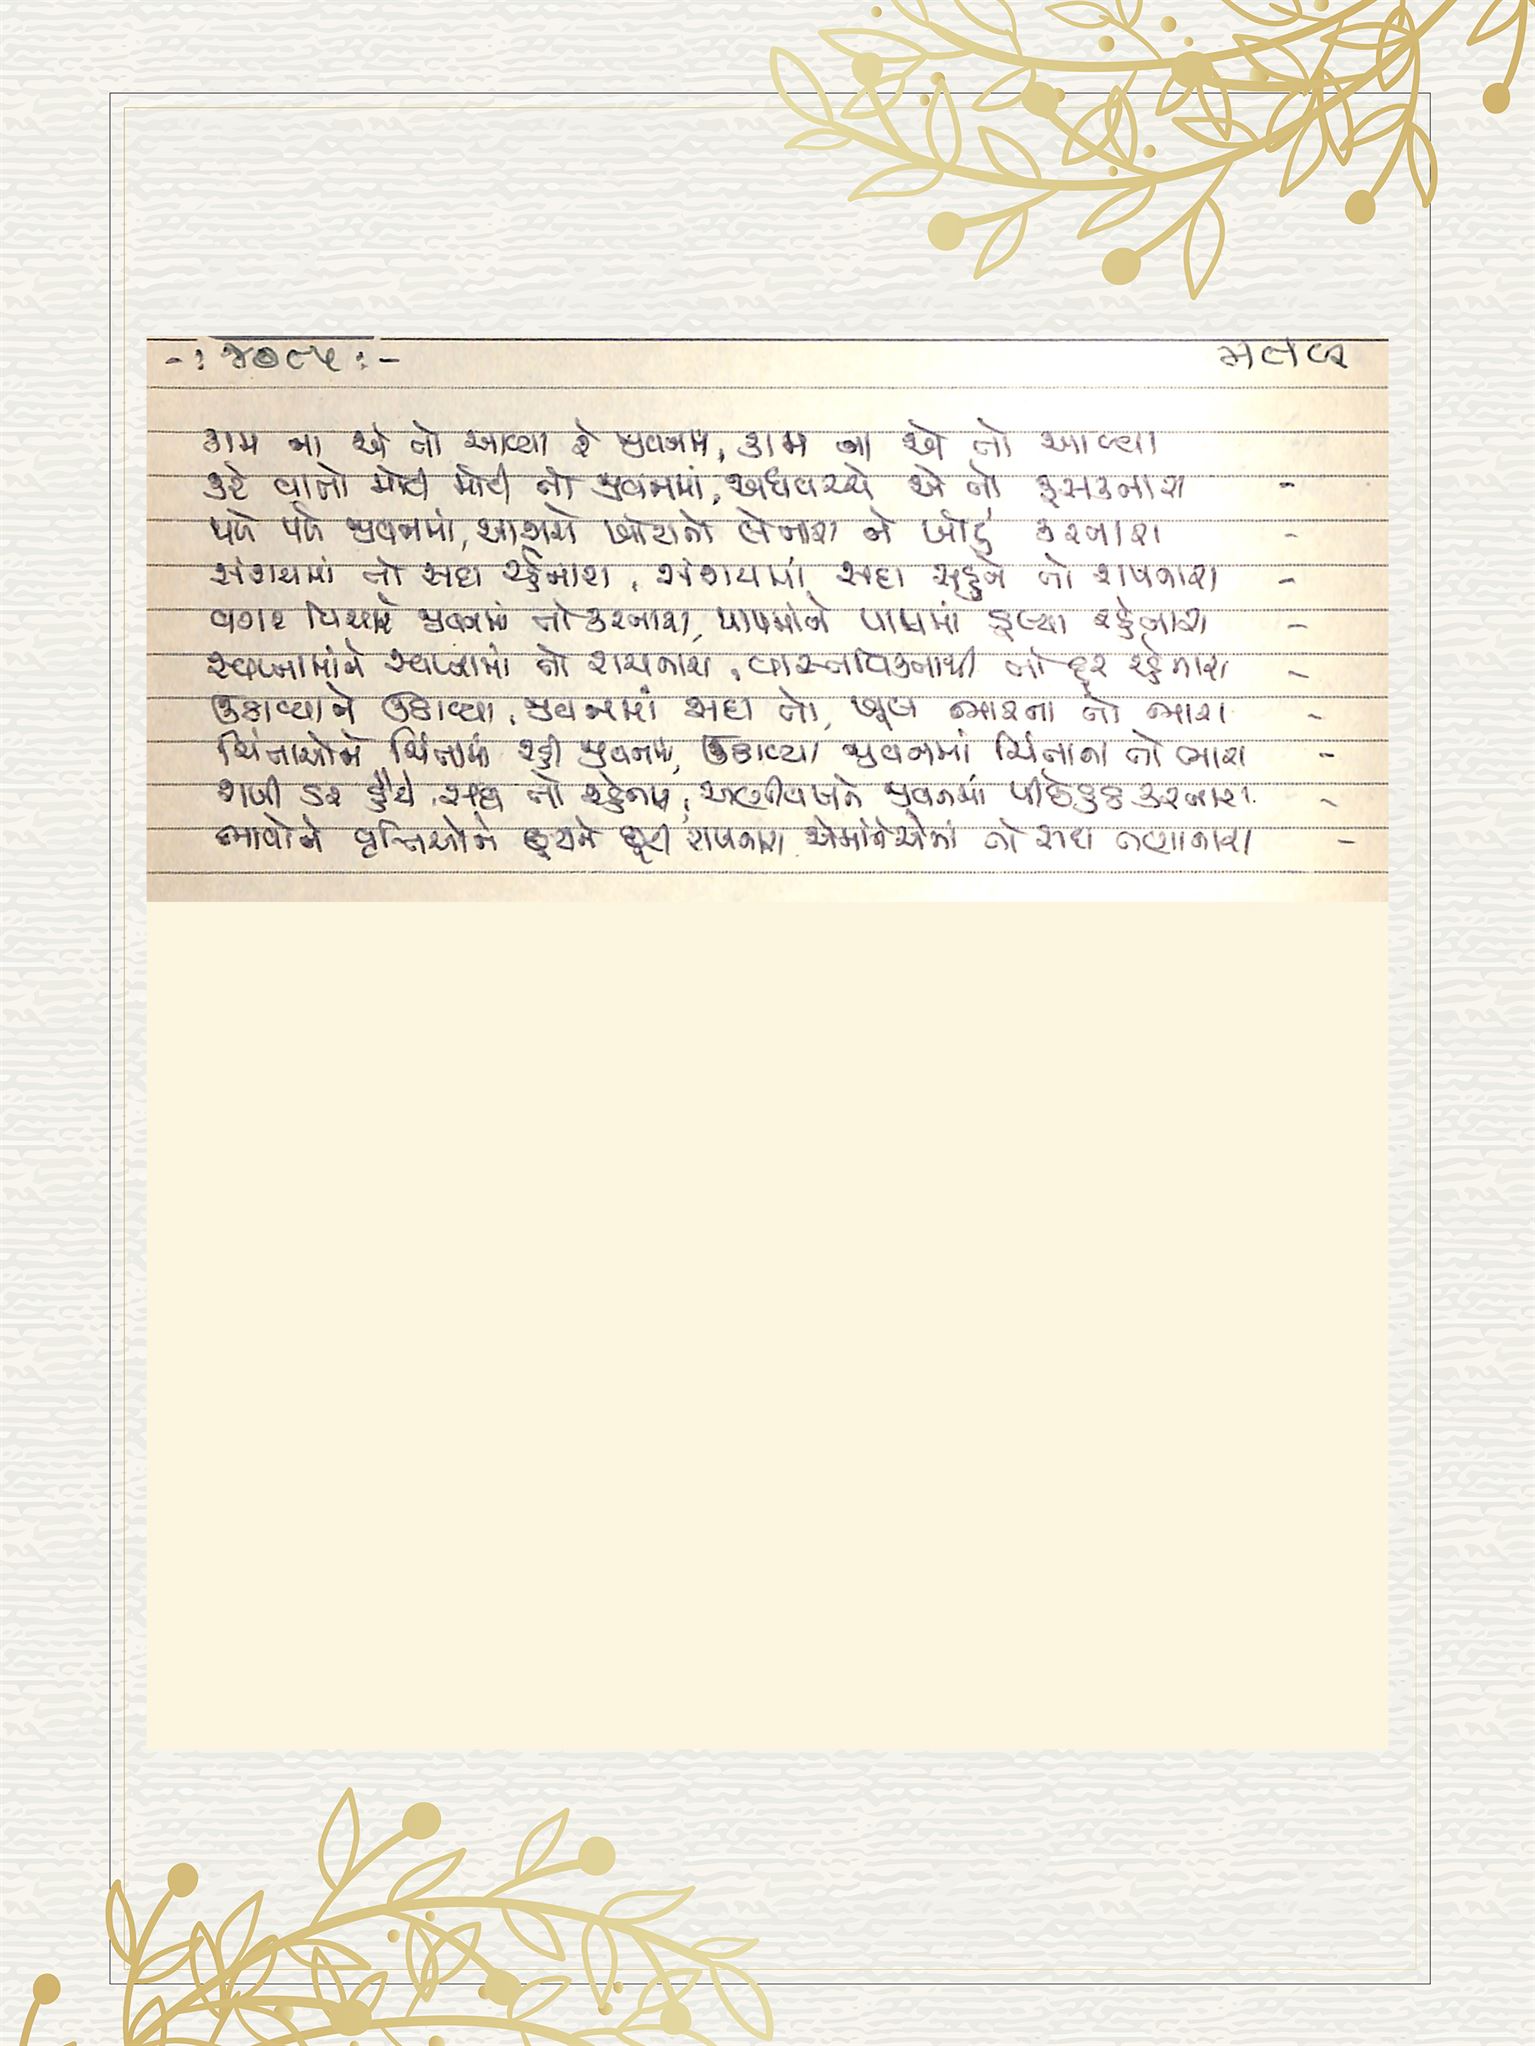 -: ૪૦૯૫ :- મતલબ
કામ ના એ તો આવ્યા રે જીવનમાં, કામ ના એ તો આવ્યા
કરે વાતો મોટી મોટી તો જીવનમાં, અધવચ્ચે એ તો ફસકનારા -
પળે પળે જીવનમાં, આશરો ખોટાનો લેનારા ને ખોટું કરનારા -
સંશયમાં તો સદા રહેનારા, સંશયમાં સદા સહુને તો રાખનારા -
વગર વિચારે જીવનમાં તો કરનારા, પાપમાંને પાપમાં ડૂબ્યા રહેનારા -
સ્વપ્નામાંને સ્વપ્નામાં તો રાચનારા, વાસ્તવિક્તાથી તો દૂર રહેનારા -
ઉઠાવ્યાને ઉઠાવ્યા, જીવનમાં સદા તો, ખૂબ ભારના તો ભારા -
ચિંતાઓને ચિંતામાં રહી જીવનમાં, ઉઠાવ્યા જીવનમાં ચિંતાના તો ભારા -
રાખી ડર હૈયે સદા તો રહેનારા, અણીવખતે જીવનમાં પીછેહઠ કરનારા -
ભાવોને વૃત્તિઓને છૂટાને છૂટી રાખનારા એમાંનેએમાં તો સદા તણાનારા -